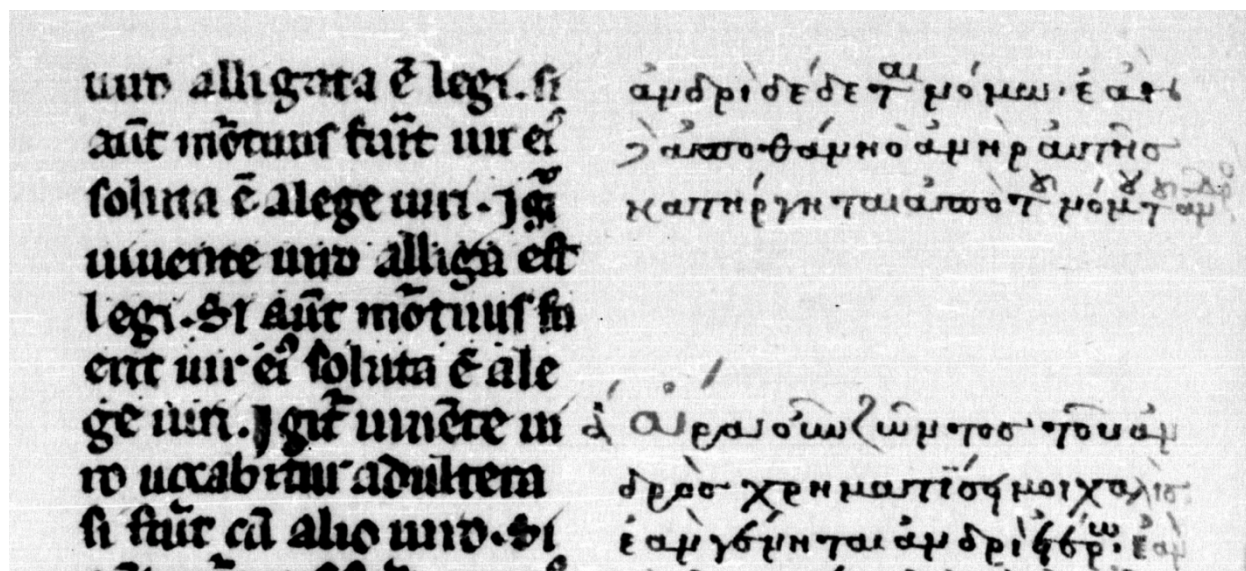 uiro alligata ē legi. si
aūt mōtuus fuīt uir ei⁹
soluta ē alege uiri. Jgͥ
uiuente uiro alliga est
legi. Si aūt mōtuus fu
erit uir ei⁹ soluta ē ale
ge uiri. Jgit̄ uiuēte ui
ro uocabitur adultera
si fūit cū alio uiro. Si
ἀνδρὶ δέδεται νόμω. ἐὰν
δὲ ἀποθάνη ὁ ἀνὴρ αὐτῆς
κατήργηται ἀπὸ τοῦ νόμου τοῦ
ἄρα οὖν ζῶντος τοῦ ἀν
δρὸς χρηματίσει μοιχαλὶς
ἐὰν γένηται ἀνδρὶ ἑτέρω. ἐὰν